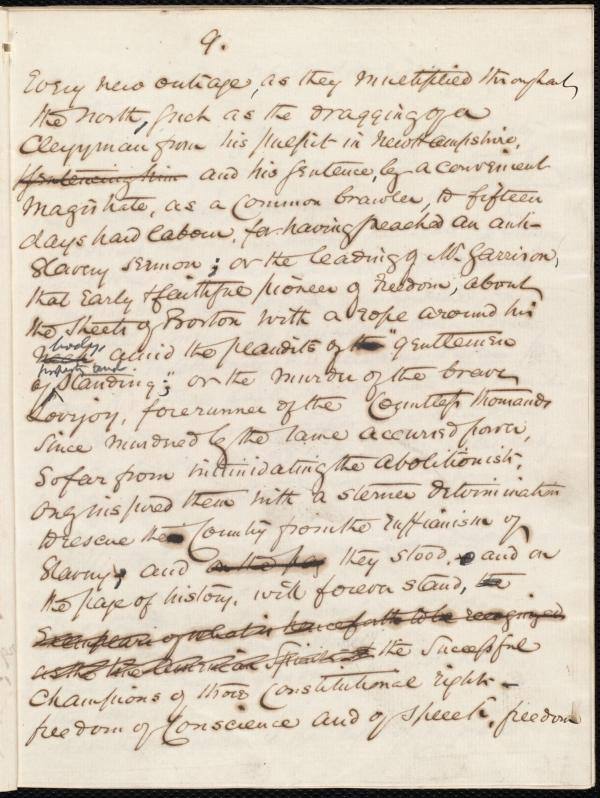 9.
Every new outrage, as they multiplied throughout
the North, such as the dragging of a
Clergyman from his pulpit in New Hampshire,
sentencing him and his sentence, by a convenient
Magistrate, as a Common brawler, to fifteen
days hard labour, for having preached an anti-
Slavery Sermon; or the leading of Mr Garrison,
that Early & faithful pioneer of Freedom, about
the Streets of Boston with a rope around his
body,
neck amid the plaudits of the "gentlemen
property and
of standing;" or the Murder of the brave
Lovejoy, forerunner of the Countless thousands
Since murdered by the same accursed power,
So far from intimidating the Abolitionists,
only inspired them with a sterner determination
to rescue the Country from the ruffianism of
Slavery; and on the pag they stood, and on
the page of history, will forever stand, the
as the true American Spirit the Successful
Champions of those Constitutional rights –
freedom of Conscience and of Speech, freedom